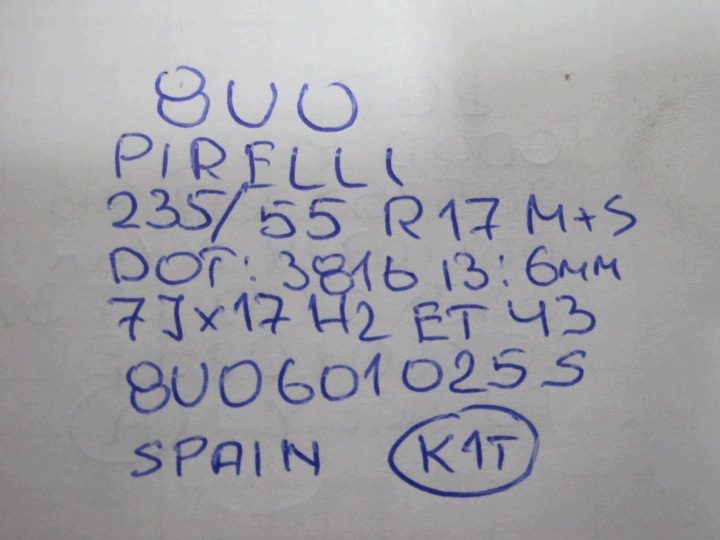 8U0
PIRELLI
235/55 R17 M+S
DOT: 3816 B: 6MM
7Jx17 H2 ET 43
8U0601025S
SPAIN K1T